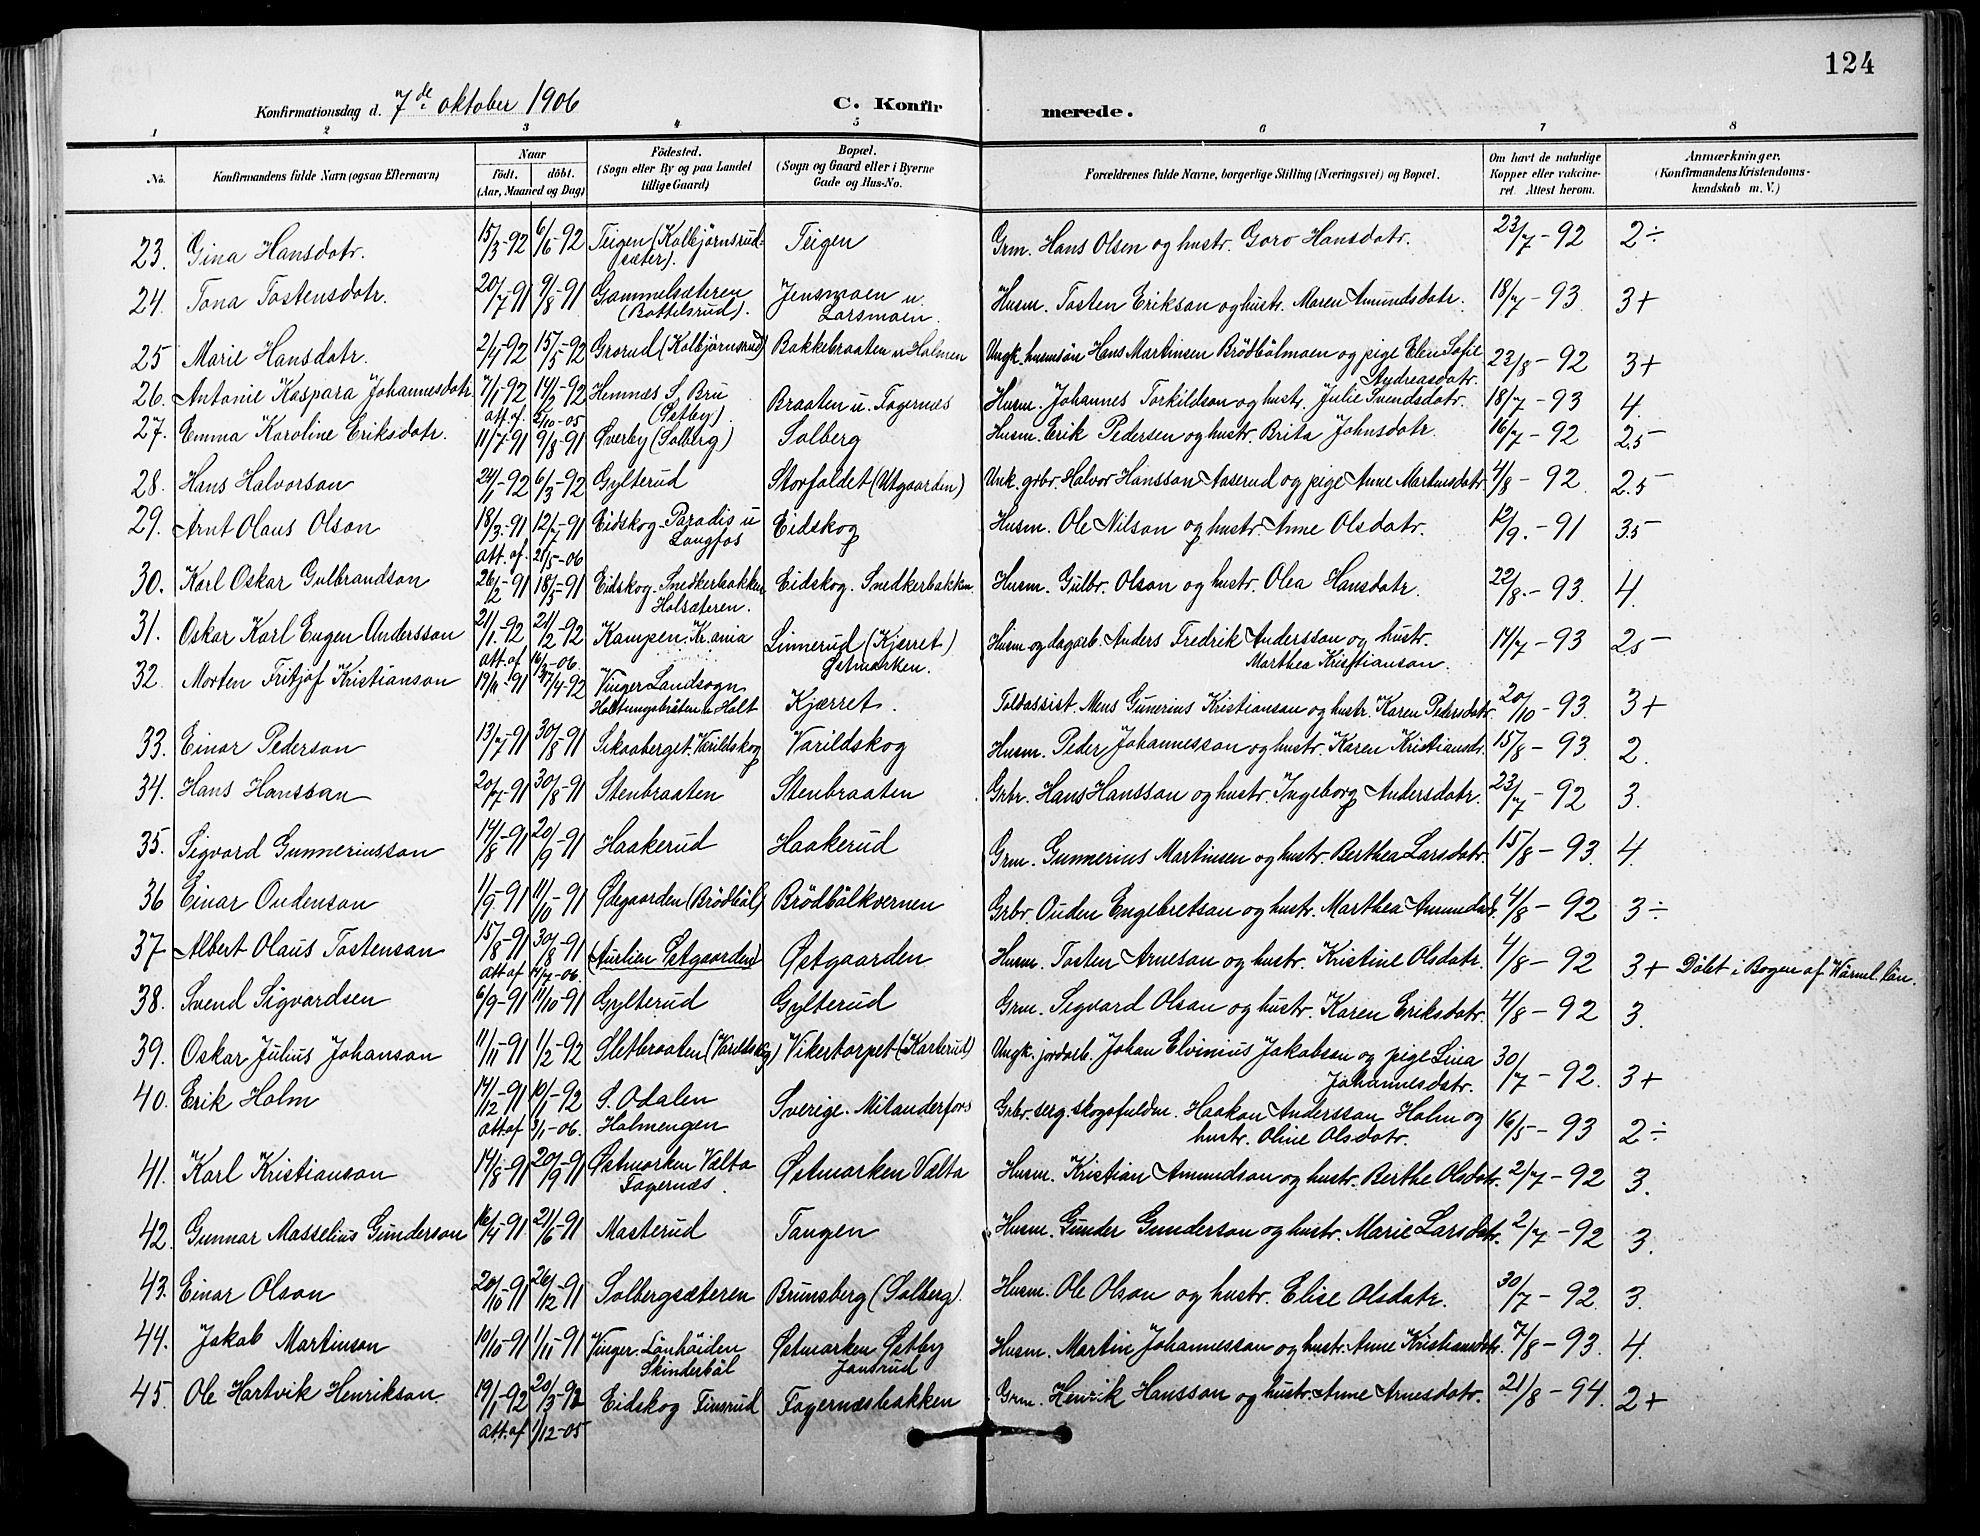 124
Konfirmationsdag d. 7de oktober 1906 C. Konfir merede.
1 2 3 4 5 6 7 8
No. Konfirmandens fulde Navn (ogsaa Efternavn) Naar født. døbt. (Aar, Maaned og Dag) Fødested. (Sogn eller By og paa Landet tillige Gaard) Bopæl. (Sogn og Gaard eller i Byerne Gade og Hus-No. Forældrenes fulde Navne, borgerlige Stilling (Næringsvei) og Bopæl. Om havt de naturlige Kopper eller vakcineret. Attest herom. Anmærkninger. (Konfirmandens Kristendomskundskab m. V.)
23. Gina Hansdatr. 15/3-92 6/6-92 Teigen (Kolbjørnsrudsæter). Teigen Grm. Hans Olsen og hustr. Goro Hansdatr. 23/7-92 2÷
24. Tona Tostensdatr. 20/7-91 9/8-91 Gammelsæteren (Bottilsrud). Jensmoen u. Larsmoen. Husm. Tosten Erikson og hustr. Maren Amundsdatr. 18/7-93 3+
25 Marie Hansdatr. 2/4-92 15/5-92 Grorud (Kolbjørnsrud) Bakkebraaten u Holmen Ungk. husmsøn Hans Martinsen Brödbölmoen og pige Elen Sofie Andreasdatr. 23/8-92 3+
26. Antonie Kaspara Johannesdatr. 7/1-92 14/2-92 Hemnes S. Bru (Østby). Braaten u. Fagernæs Husm. Johannes Torkildson og hustr. Julie Svendsdatr. 18/7-93 4.
att. af. 5/10-05
27. Emma Karoline Eriksdatr. 11/7-91 9/8-91 Øverby (Solberg) Solberg Husm. Erik Pedersen og hustr. Brita Johnsdatr. 16/7-92 2.5-
28. Hans Halvorson 24/1-92 6/3-92 Gylterud Storfaldet (Utgaarden) Unk. grbr. Halvor Hansson Aaserud og pige Anne Martinsdatr 4/8-92 2.5-
29. Arnt Olaus Olson 18/3-91 12/7-91 Eidskog-Paradis u Langfos Eidskog Husm. Ole Nilson og hustr. Anne Olsdatr. 12/9.-91 3.5-
att. af. 21/5-06
30. Karl Oskar Gulbrandson 26/2-91 18/5-91 Eidskog-Snedkerbakken Holsæteren. Eidskog. Snedkerbakken. Husm. Gulbr. Olson og hustr. Olea Hansdatr. 22/8.-93. 4.
31. Oskar Karl Eugen Andersson 21/1-92 21/2-92 Kampen, Kr.ania Linnerud (Kjerret) Østmarken. Husm og dagarb. Anders Fredrik Andersson og hustr. Marthea Kristianson. 14/7-93 2.5-
att. af 16/3-06.
32. Morten Fritjof Kristianson 19/11-91 17/4-92 Vinger Landsogn Holtungsbråten u. Holt Kjærret. Toldassist. Mens Gunerius Kristianson og hustr. Karen Pedersdatr. 20/10-93. 3+
33. Einar Pederson 13/7-91 30/8-91 Skaaberget. Varildskog Varildskog Husm. Peder Johannesson og hustr. Karen Kristiansdr. 15/8-93. 2.
34. Hans Hansson 20/7-91 30/8-91 Stenbraaten Stenbraaten Grbr. Hans Hansson og hustr. Ingeborg Andersdatr. 23/7-92 3.
35. Sigvard Gunneriusson 14/8-91 20/9-91 Haakerud Haakerud Grm. Gunnerius Martinsen og hustr. Berthea Larsdatr. 15/8-93. 4.
36 Einar Oudenson 1/9-91 11/10-91 Ødegaarden (Brödböl) Brödbölkvernen Grbr. Ouden Engebretson og hustr. Marthea Amundsdr. 4/8-92 3÷
37 Albert Olaus Tostenson 15/8-91 30/8-91 (Aurlien Østgaarden) Østgaarden Husm. Tosten Arneson og hustr. Kristine Olsdatr. 4/8-92 3+ Döbt i Bogen af Wärml. län.
att af 14/7-06.
38. Svend Sigvardsen 6/9-91 11/10-91 Gylterud Gylterud Grm. Sigvard Olson og hustr. Karen Eriksdatr. 4/8-92 3.
39. Oskar Julius Johanson 11/11-91 1/2-92 Sletbraaten (Varildskog) Vikertorpet (Karterud) Ungk. jordarb. Johan Elvinius Jakobson og pige Lina Johannesdatr. 30/7-92. 3+
40. Erik Holm 14/12-91 10/1-92 S. Odalen Holmengen Sverige. Mitanderfors Grbr. serg. skogsfuldm. Haakon Andersson Holm og hustr. Oline Olsdatr. 16/5-93 2÷
att. af 3/1-06.
41. Karl Kristianson 14/8-91 20/9-91 Østmarken Vælta Fagernæs. Østmarken Vælta Husm. Kristian Amundson og hustr. Berthe Olsdatr. 2/7-92 3.
42. Gunnar Masselius Gunderson 16/4-91 21/6-91 Masterud Tangen Husm. Gunder Gunderson og hustr. Marie Larsdatr. 2/7-92 3.
43. Einar Olson 20/10-91 26/12-91 Solbergsæteren Brunsberg (Solberg). Husm. Ole Olson og hustr. Elise Olsdatr. 30/7-92. 3.
44. Jakob Martinson 10/10-91 1/11-91 Vinger. Lönhöiden Skinderböl Østmarken Østby Jansrud Husm. Martin Johannesson og hustr. Anne Kristiansdatr. 7/8-93. 4.
45. Ole Hartvik Henrikson 19/1-92 20/3-92 Eidskog Finsrud Fagernæsbakken Grm. Henrik Hansson og hustr. Anne Arnesdatr. 21/8-94. 2+
att. af 1/12-05